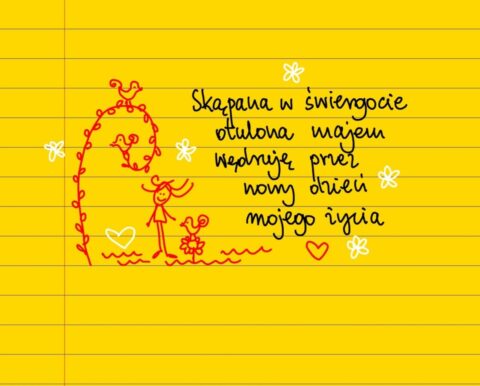 Skąpana w świergocie
otulona majem
wędruję przez
nowy dzień
mojego życia